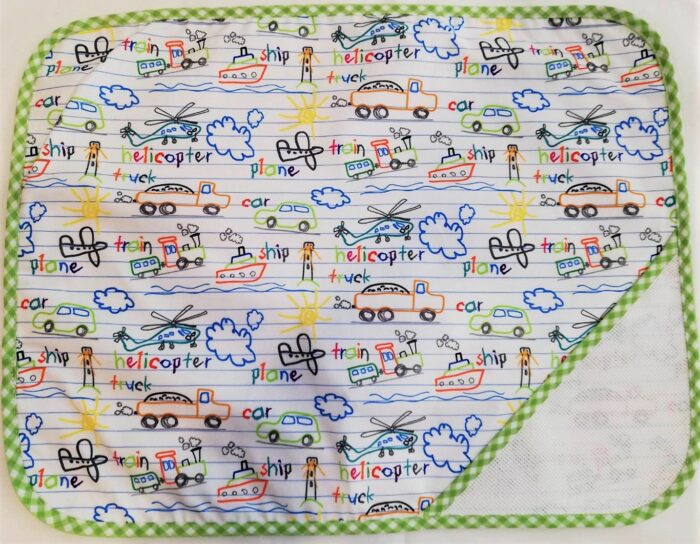 train ship helicopter train
plane truck plane ship
car car
ship helicopter train ship helicopter
truck plane truck
car
train ship helicopter train
plane truck plane
car car
ship helicopter train ship
truck plane
car
train ship helicopter
plane truck